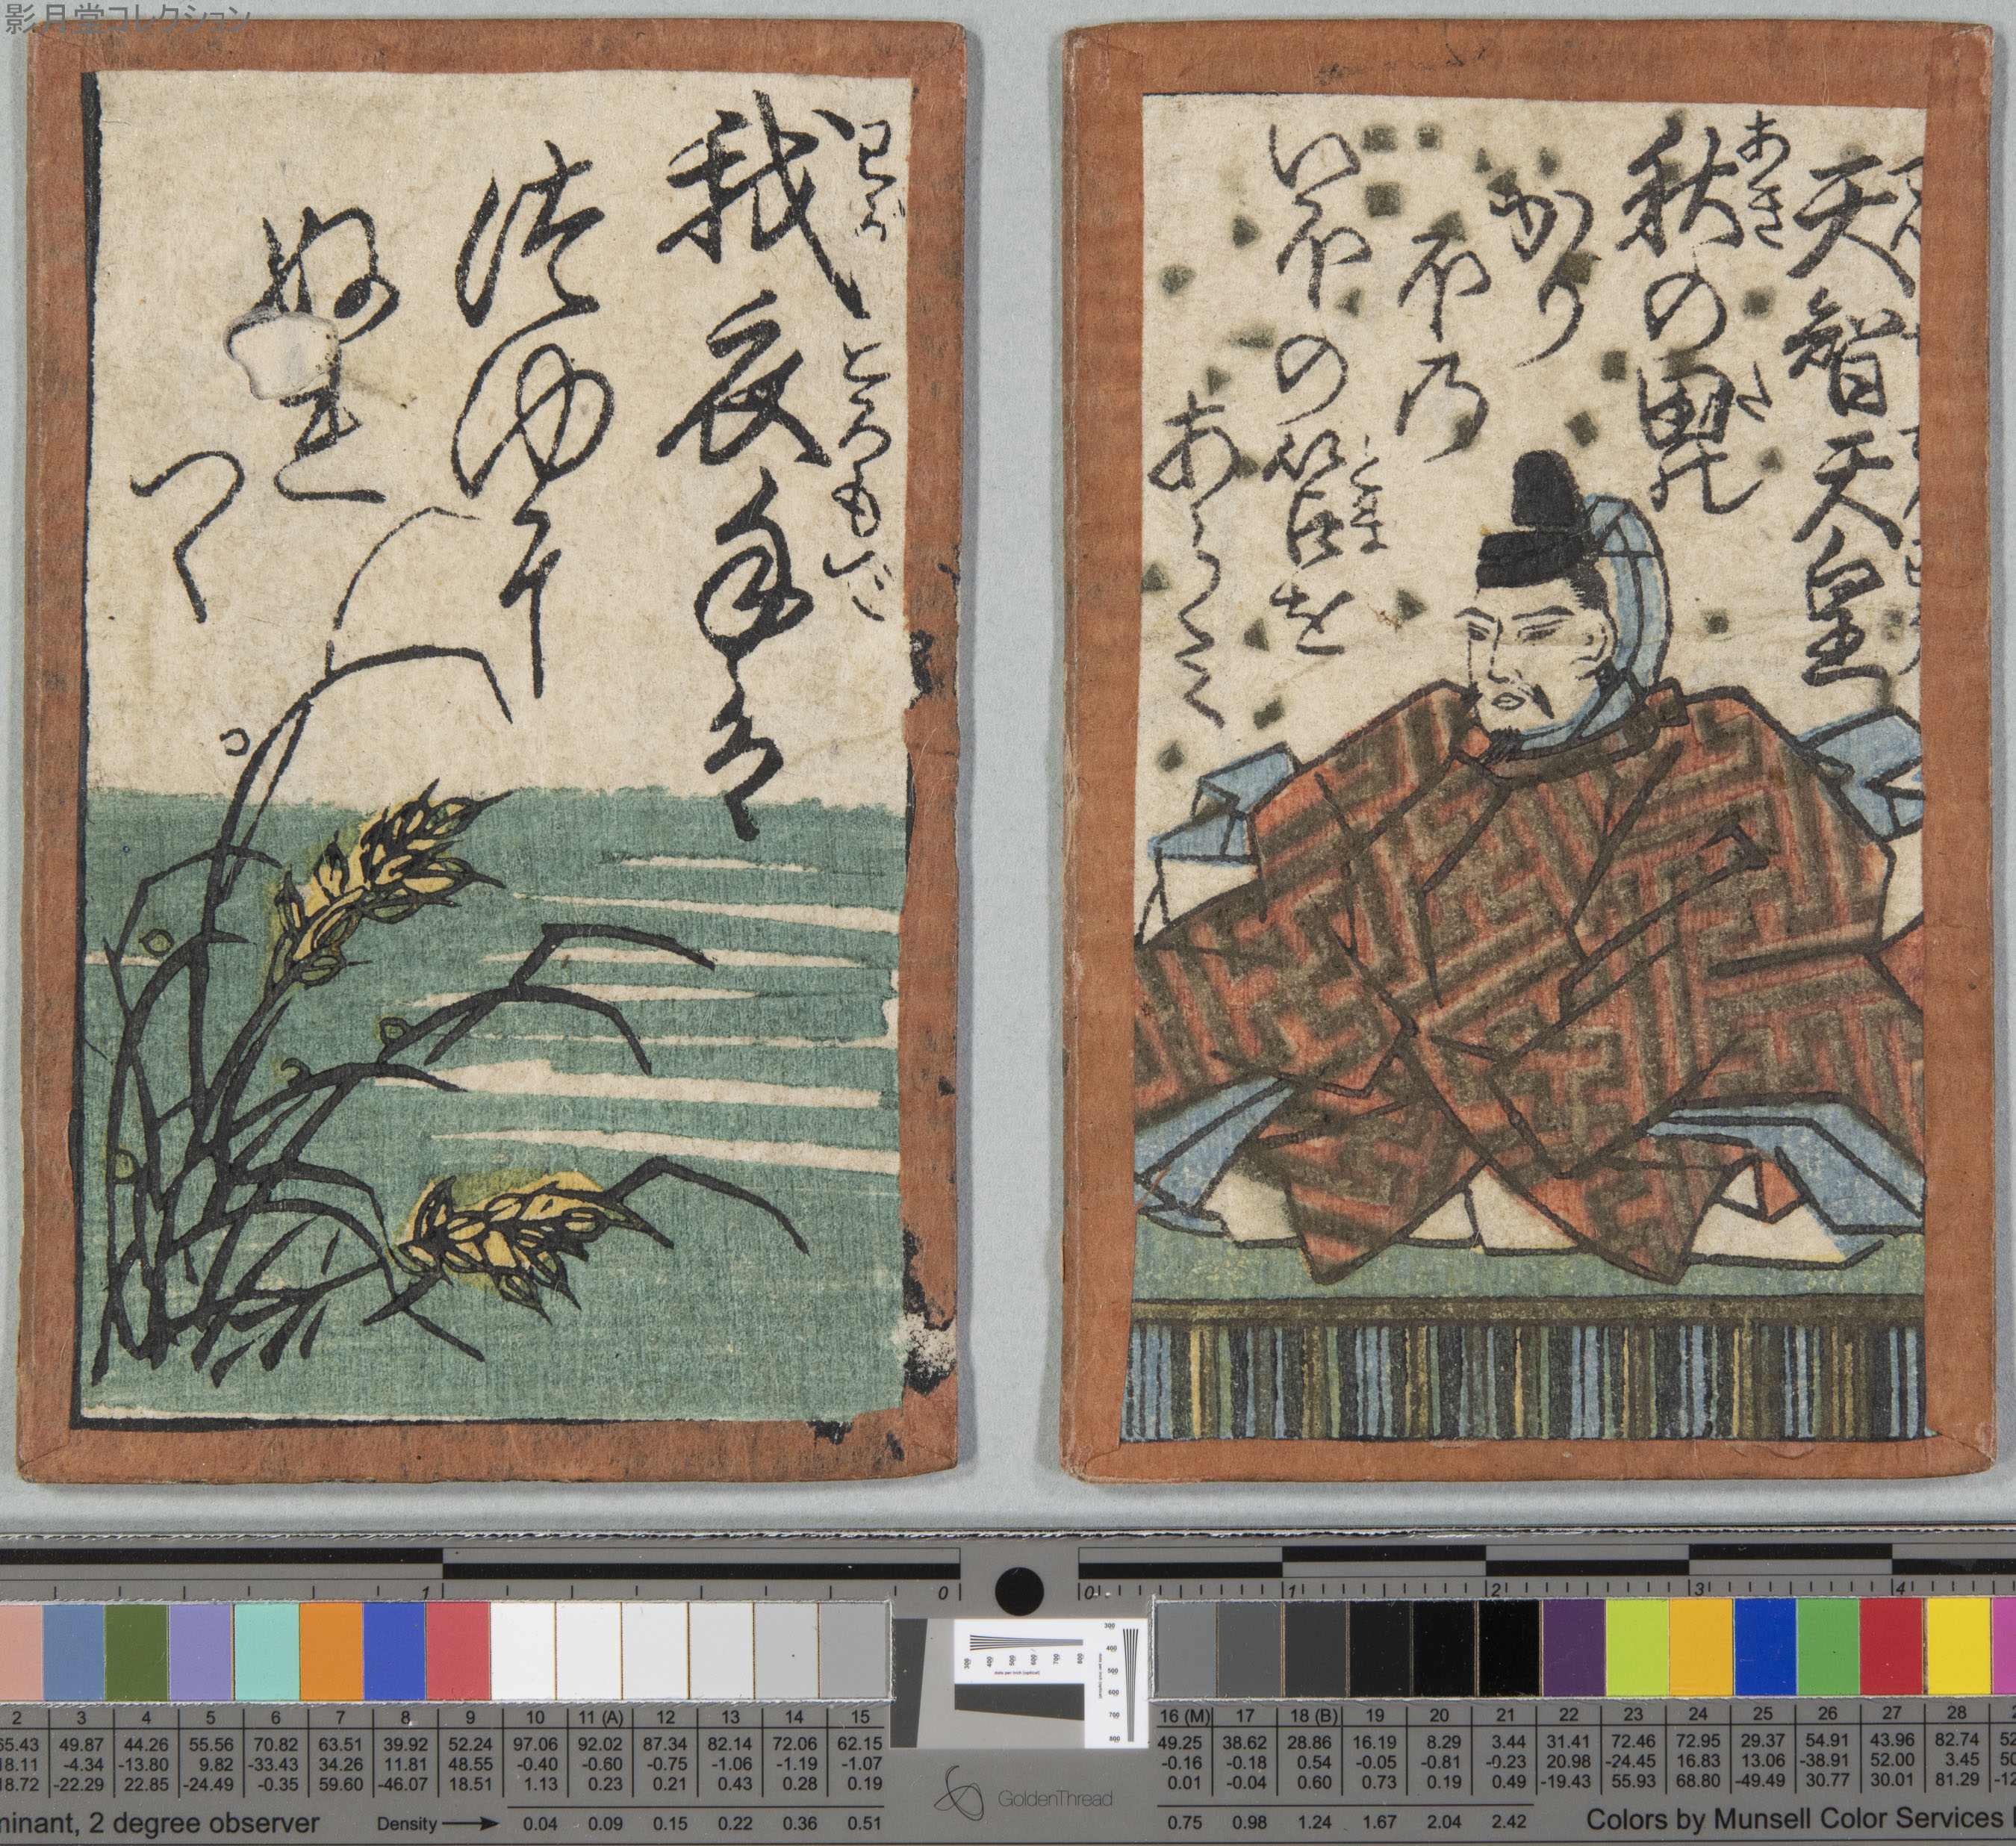 影月堂コレクション
天智天皇
あき
秋の田の
かり
ほの
いほの苫を
とま
あらミ
わが
ころもで
我衣手は
つゆに
ぬれ
つゝ
1 0 0 1 2 3 4
2 3 4 5 6 7 8 9 10 11 (A) 12 13 14 15
65.43 49.87 44.26 55.56 70.82 63.51 39.92 52.24 97.06 92.02 87.34 82.14 72.06 62.15
18.11 -4.34 -13.80 9.82 -33.43 34.26 11.81 48.55 -0.40 -0.60 -0.75 -1.06 -1.19 -1.07
18.72 -22.29 22.85 -24.49 -0.35 59.60 -46.07 18.51 1.13 0.23 0.21 0.43 0.28 0.19
minant, 2 degree observer
Density 0.04 0.09 0.15 0.22 0.36 0.51
300 400 500 600 700 800
dots per inch (optical)
300 400 500 600 700 800
GoldenThread
16 (M) 17 18 (B) 19 20 21 22 23 24 25 26 27 28
49.25 38.62 28.86 16.19 8.29 3.44 31.41 72.46 72.95 29.37 54.91 43.96 82.74
-0.16 -0.18 0.54 -0.05 -0.81 -0.23 20.98 -24.45 16.83 13.06 -38.91 52.00 3.45
0.01 -0.04 0.60 0.73 0.19 0.49 -19.43 55.93 68.80 -49.49 30.77 30.01 81.29
0.75 0.98 1.24 1.67 2.04 2.42
Colors by Munsell Color Services